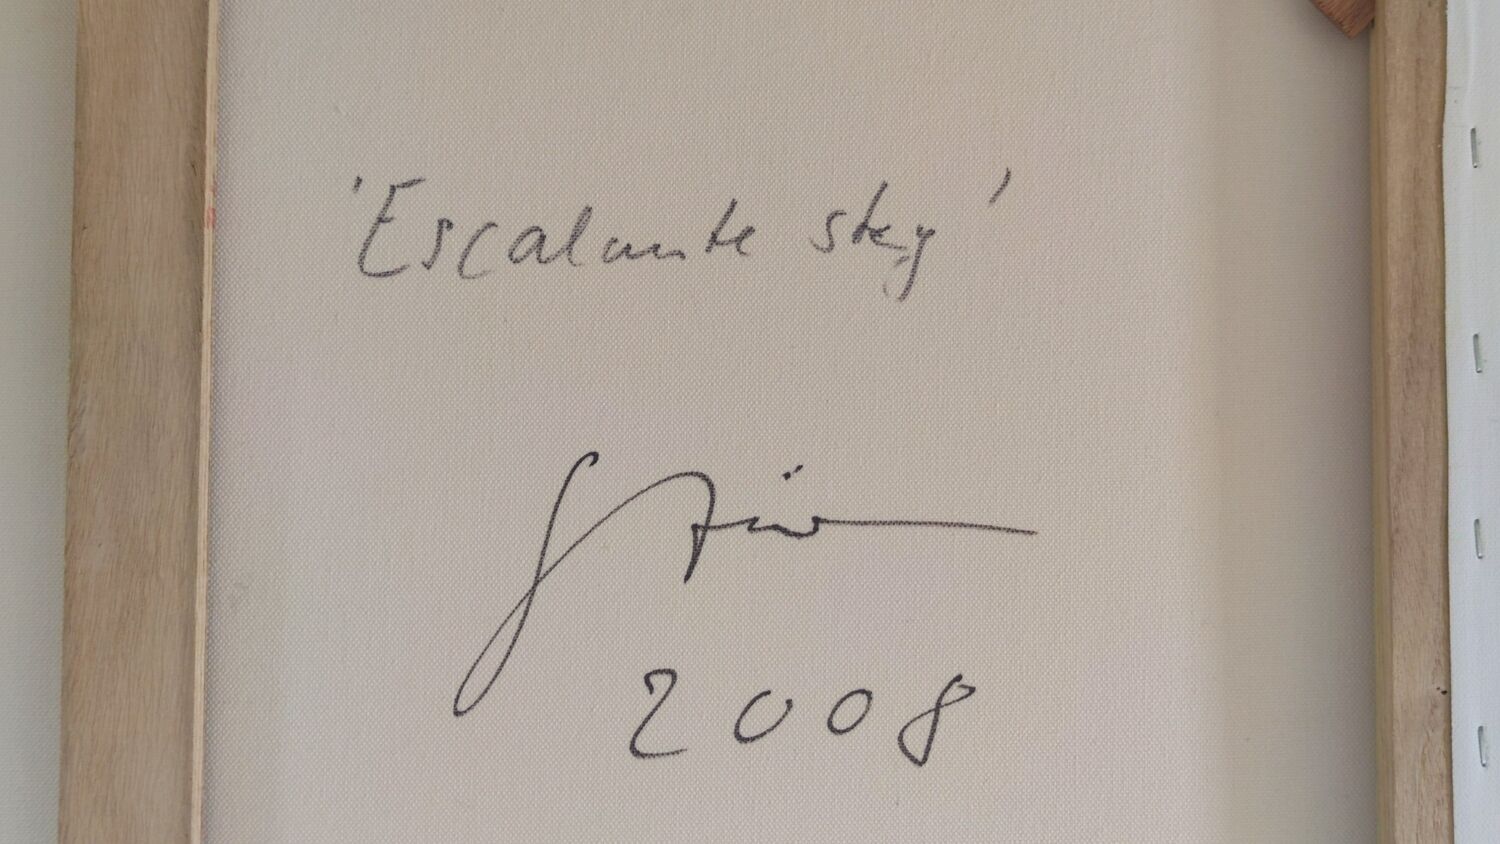 'Escalante sky'
2008